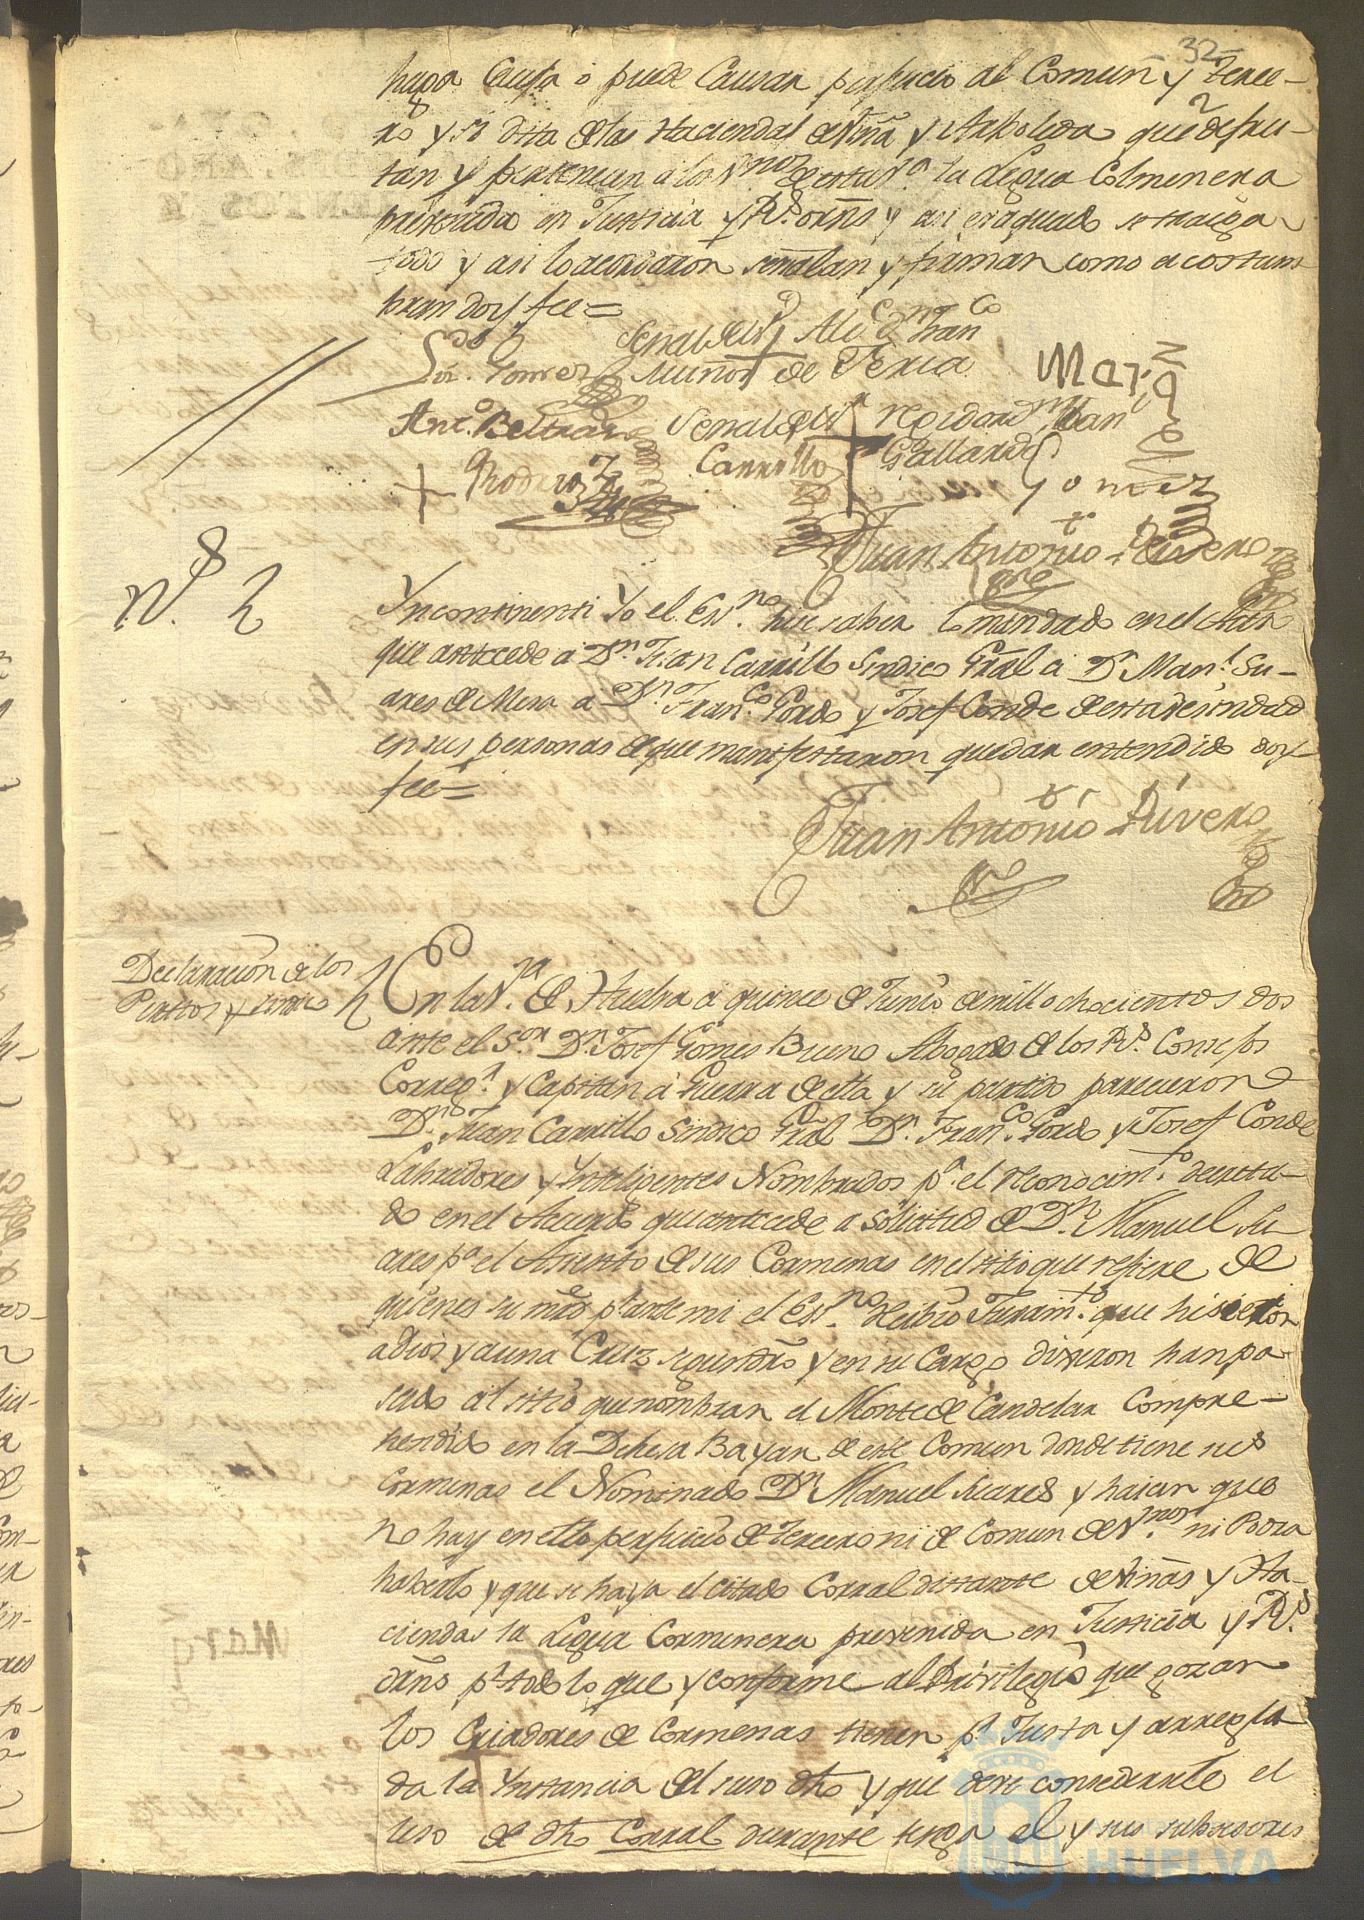 -32-
haga Causa o puede Causar perjuicio al Comun y Terce-
ro y si dista de las Haciendas de Viña y Arboleda que disfru-
tan y pertenecen a los V.nos de esta V.a la Legua Colmenera
prevenida en Justicia y R.s ornes y asi evaquado se traiga
todo y asi lo acordaron señalan y firman como acostum
bran doy fee=
Ldo Gomez
Señal del Sr Alc.e Dn Fran.co
Muñoz de Feria
Ant.o Beltran
Señal del Sr rexidor Man
Carrillo
Gallardo
Gomez
Rodero
Juan Antonio Rivero
N.s
Yncontinenti Yo el Es.no hise saber lo mandado en el Auto
que antecede a D.n Juan Carrillo Sindico Gral a D.n Man.l Su-
ares de Mora a D.n Fran.co Gordo y Josef Conde de esta vesindad
en sus personas de que manifestaron quedar entendidos doy
fee=
Juan Antonio Rivero
Declaracion de los
Peritos y sindico
En la V.a de Huelva a quince de Junio de mill ochocientos dos
ante el S.or D.n Josef Gomes Bueno Abogado de los R.s Consejos
Correg.r y Capitan a Guerra de ella y su partido parecieron
D.n Juan Carrillo Sindico Gral D.n Fran.co Gordo y Josef Conde
Labradores y Ynteligentes Nombrados p.a el reconocim.to decreta-
do en el Acuerdo que antecede a solicitud de D.n Manuel Su
ares p.a el Asiento de sus Cormenas en el sitio que refiere de
quienes su mrd p.r ante mi el Es.no recibio Juram.to que hisieron
a Dios y a una Cruz segun dro y en su Cargo dixeron han pa
sado al sitio que nombran el Monte de Candelar Compre-
hendido en la Dehesa Bayar de este Comun donde tiene sus
Cormenas el Nominado D.n Manuel Suares y hajan que
no hay en ello perjuicio de tercero ni de Comun de V.nos ni Podra
haberlo y que se haya el citado Corral distante de Viñas y Ha-
ciendas la Legua Cormenera prevenida en Justicia y R.s
ornes p.r todo lo que y conforme al Privilegio que gozan
los Criadores de Cormenas tienen p.r Justa y arregla
da la Ynstancia del suso dho y que deve consederle el
uso de dho Corral durante tenga el y sus subcesores
HUELVA